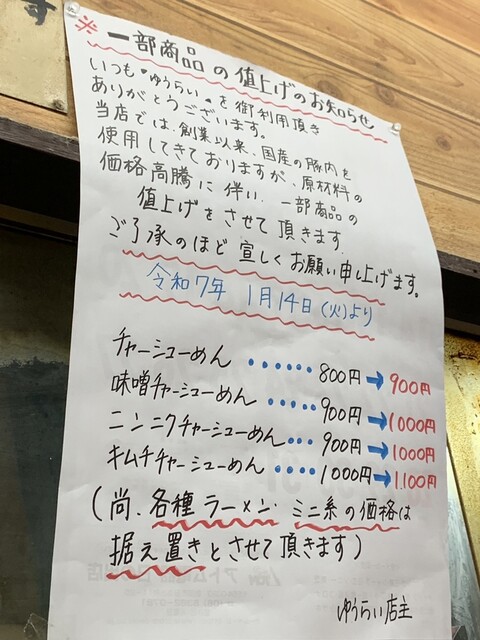 ※一部商品の値上げのお知らせ
いつも"ゆうらい"を御利用頂き
ありがとうございます。
当店では、創業以来、国産の豚肉を
使用してきておりますが、原材料の
価格高騰に伴い、一部商品の
値上げをさせて頂きます.
ご了承のほど宜しくお願い申し上げます。
令和7年 1月14日(火)より
チャーシューめん ・・・・・・ 800円→900円
味噌チャーシューめん ・・・・・ 900円→1000円
ニンニクチャーシューめん・・・ 900円→1000円
キムチチャーシューめん ・・・・ 1000円→1,100円
(尚、各種ラーメン、ミニ系の価格は
据え置きとさせて頂きます)
ゆうらい店主